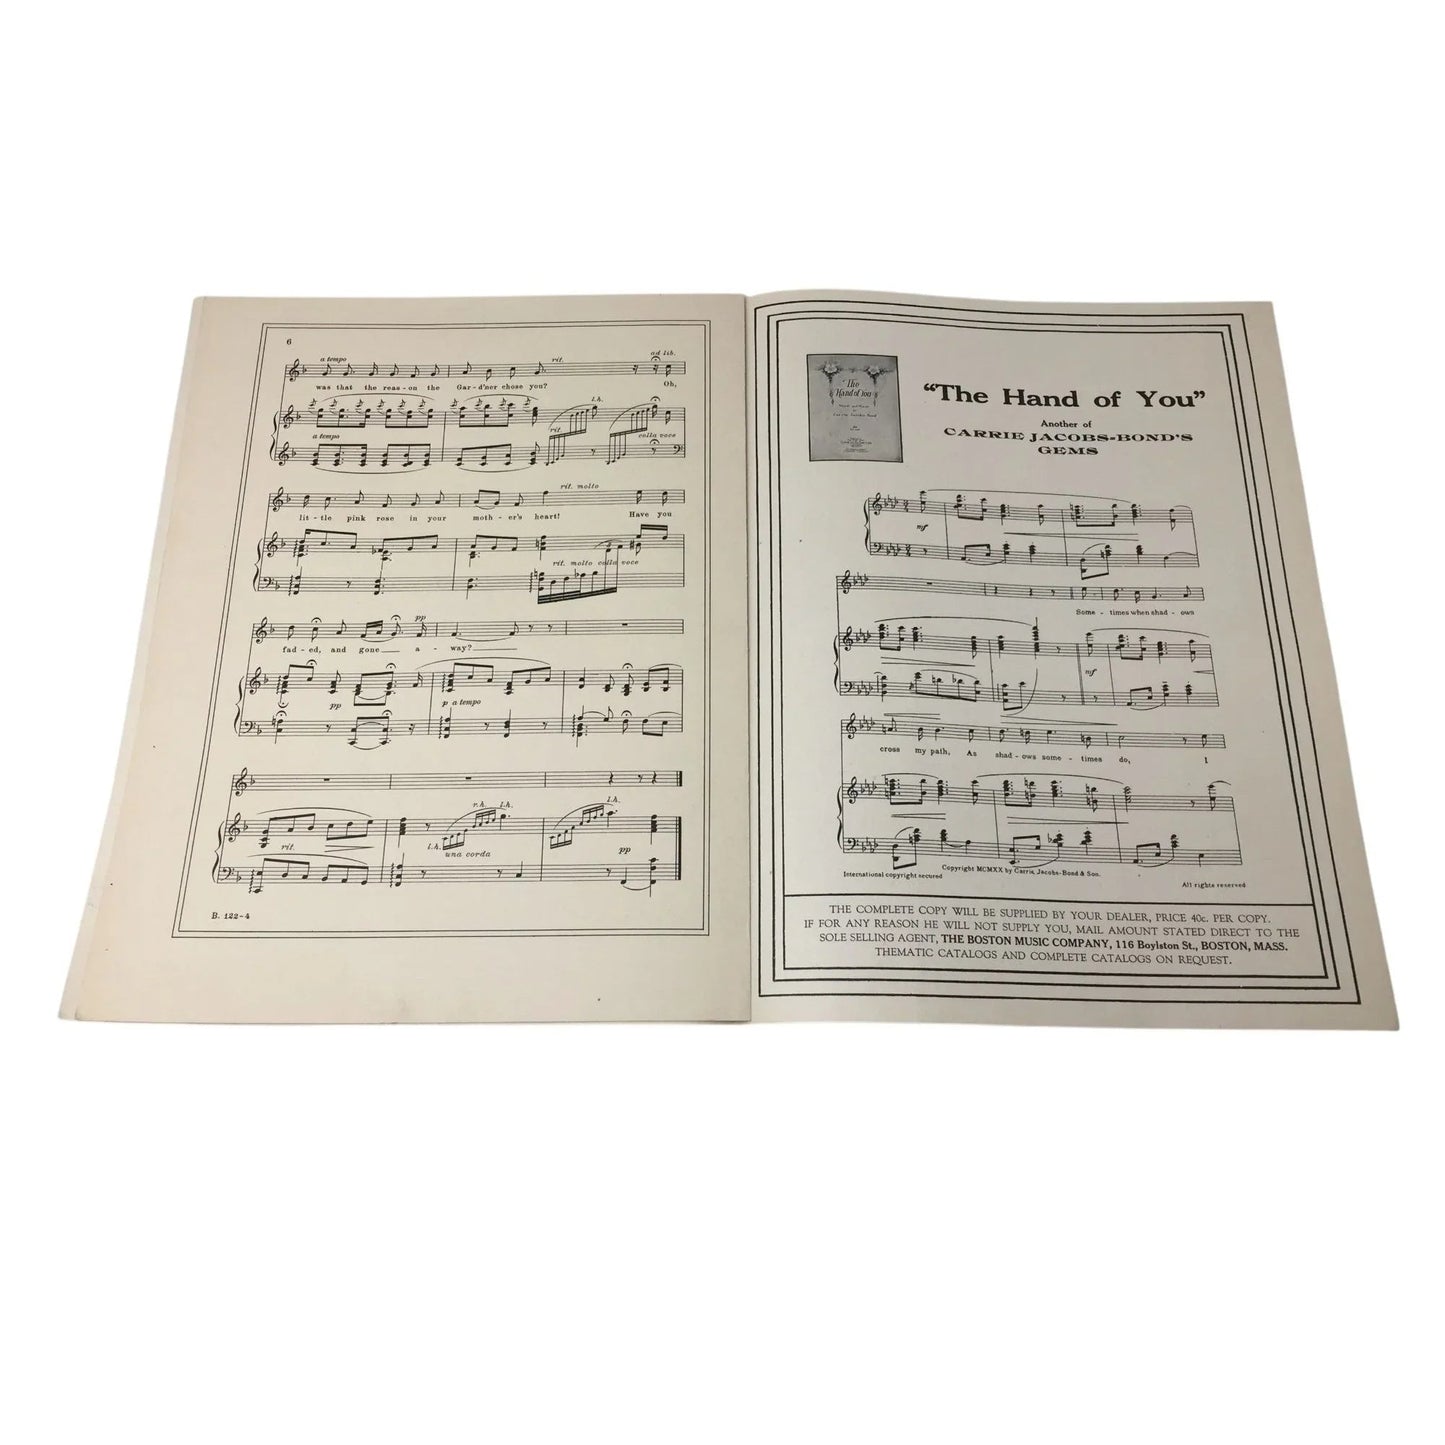 6
a tempo
rit.
ad lib.
was that the reas-on the Gard'ner chose you? Oh,
l.h.
rit.
a tempo
colla voce
rit. molto
lit-tle pink rose in your moth-er's heart! Have you
rit. molto colla voce
pp
fad-ed, and gone a-way?
pp
p a tempo
r.h. l.h.
l.h.
rit.
l.h.
una corda
pp
B. 122-4
The
Hand of You
Carrie Jacobs-Bond
"The Hand of You"
Another of
CARRIE JACOBS-BOND'S
GEMS
mf
Some-times when shad-ows
mf
cross my path, As shad-ows some-times do, I
Copyright MCMXX by Carrie Jacobs-Bond & Son.
International copyright secured
All rights reserved
THE COMPLETE COPY WILL BE SUPPLIED BY YOUR DEALER, PRICE 40c. PER COPY.
IF FOR ANY REASON HE WILL NOT SUPPLY YOU, MAIL AMOUNT STATED DIRECT TO THE
SOLE SELLING AGENT, THE BOSTON MUSIC COMPANY, 116 Boylston St., BOSTON, MASS.
THEMATIC CATALOGS AND COMPLETE CATALOGS ON REQUEST.